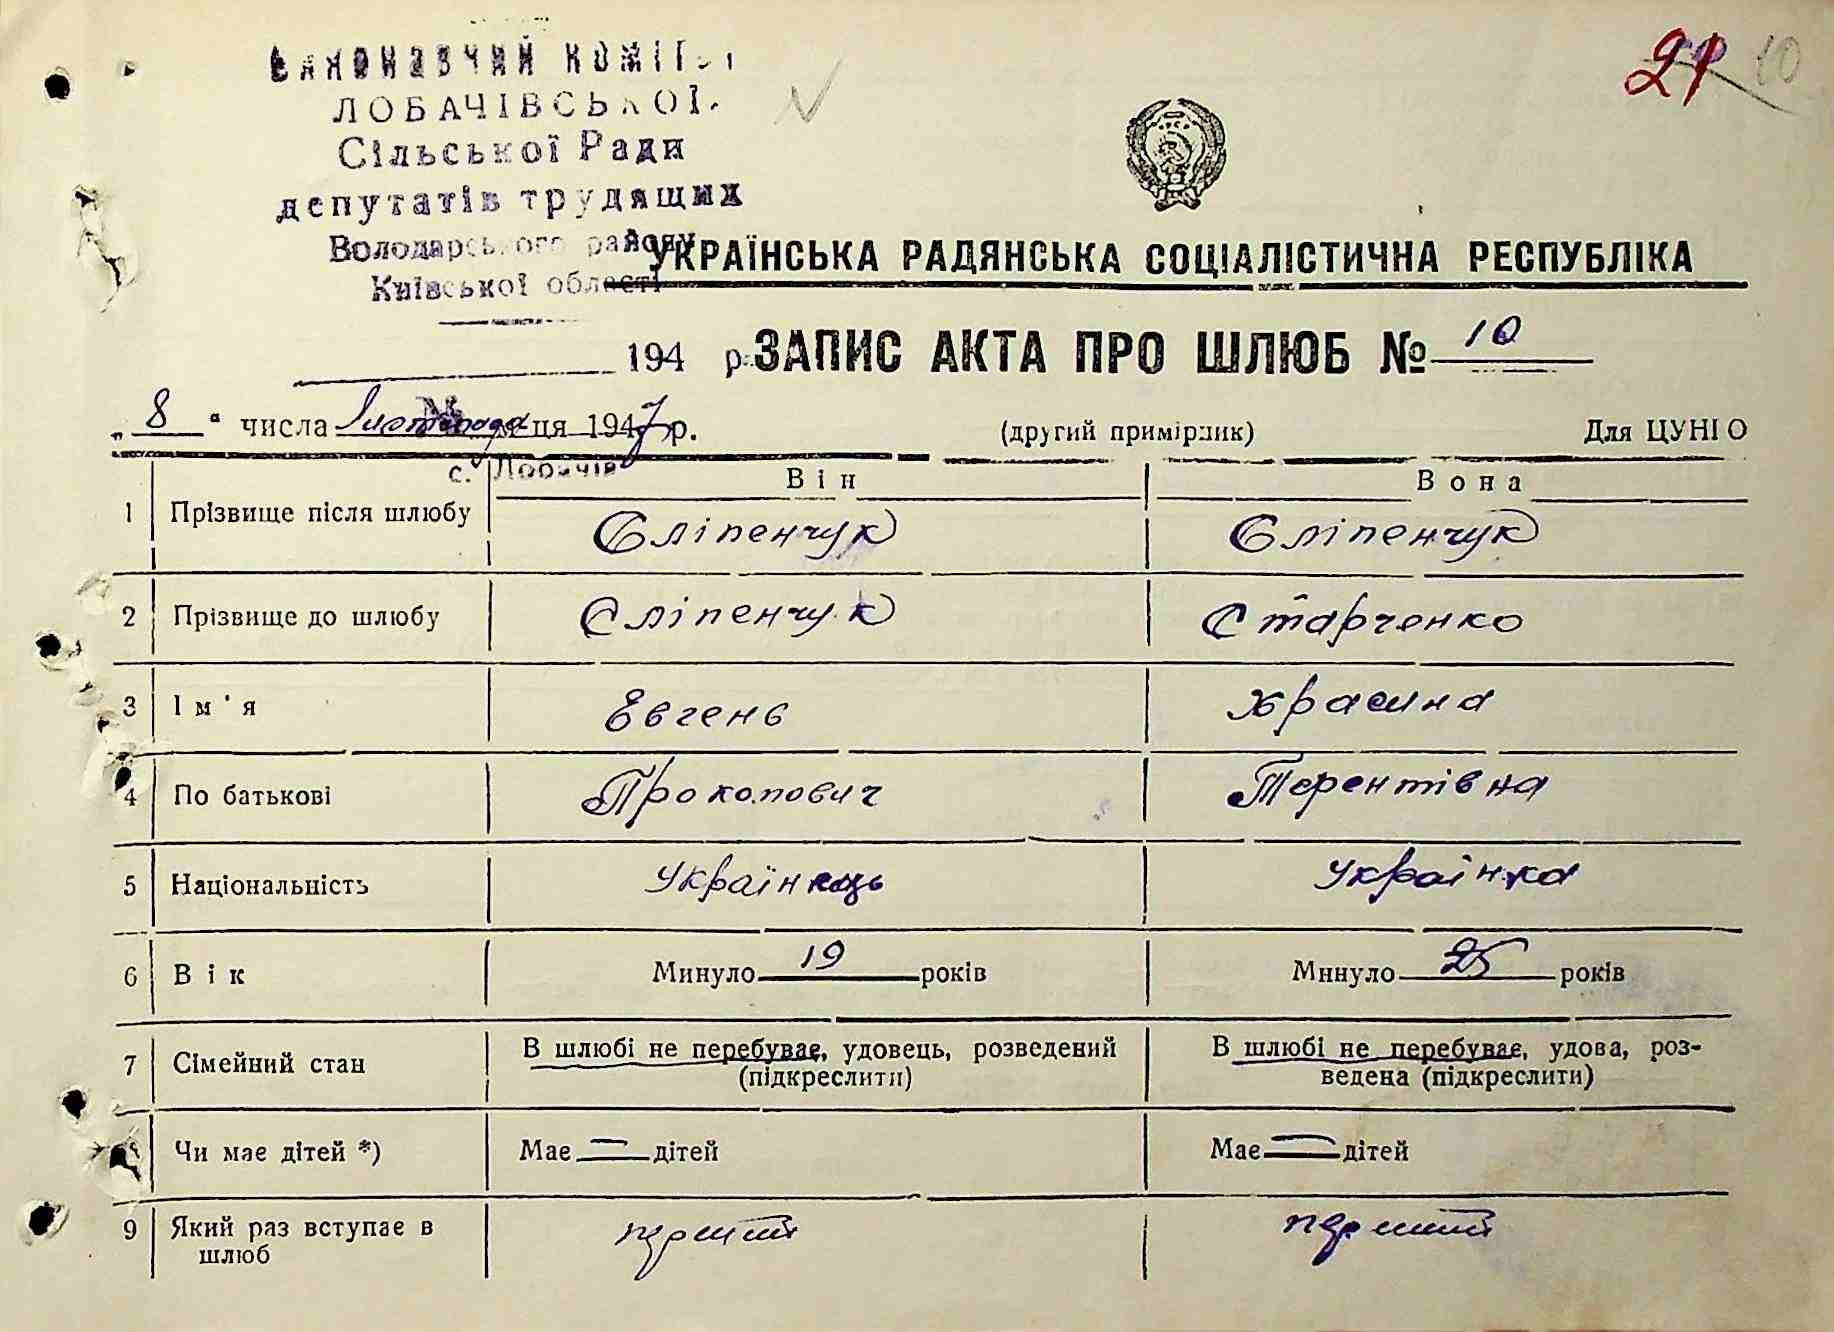 Виконавчий коміт
ЛОБАЧІВСЬКОЇ
Сільської Ради
депутатів трудящих
Володарського району
Київської області
194 р.
№
с. Лобачів
21
10
УКРАЇНСЬКА РАДЯНСЬКА СОЦІАЛІСТИЧНА РЕСПУБЛІКА
ЗАПИС АКТА ПРО ШЛЮБ № 10
„8“ числа Листопада м-ця 1947 р. (другий примірник) Для ЦУНГО
Він Вона
1 Прізвище після шлюбу Сліпенчук Сліпенчук
2 Прізвище до шлюбу Сліпенчук Старченко
3 Ім'я Евгень
4 По батькові Прокопович Терентівна
5 Національність Українець Українка
6 Вік Минуло 19 років Минуло 25 років
7 Сімейний стан В шлюбі не перебуває, удовець, розведений (підкреслити) В шлюбі не перебуває, удова, роз-
ведена (підкреслити)
Чи має дітей *) Має — дітей Має — дітей
9 Який раз вступає в шлюб перший перший